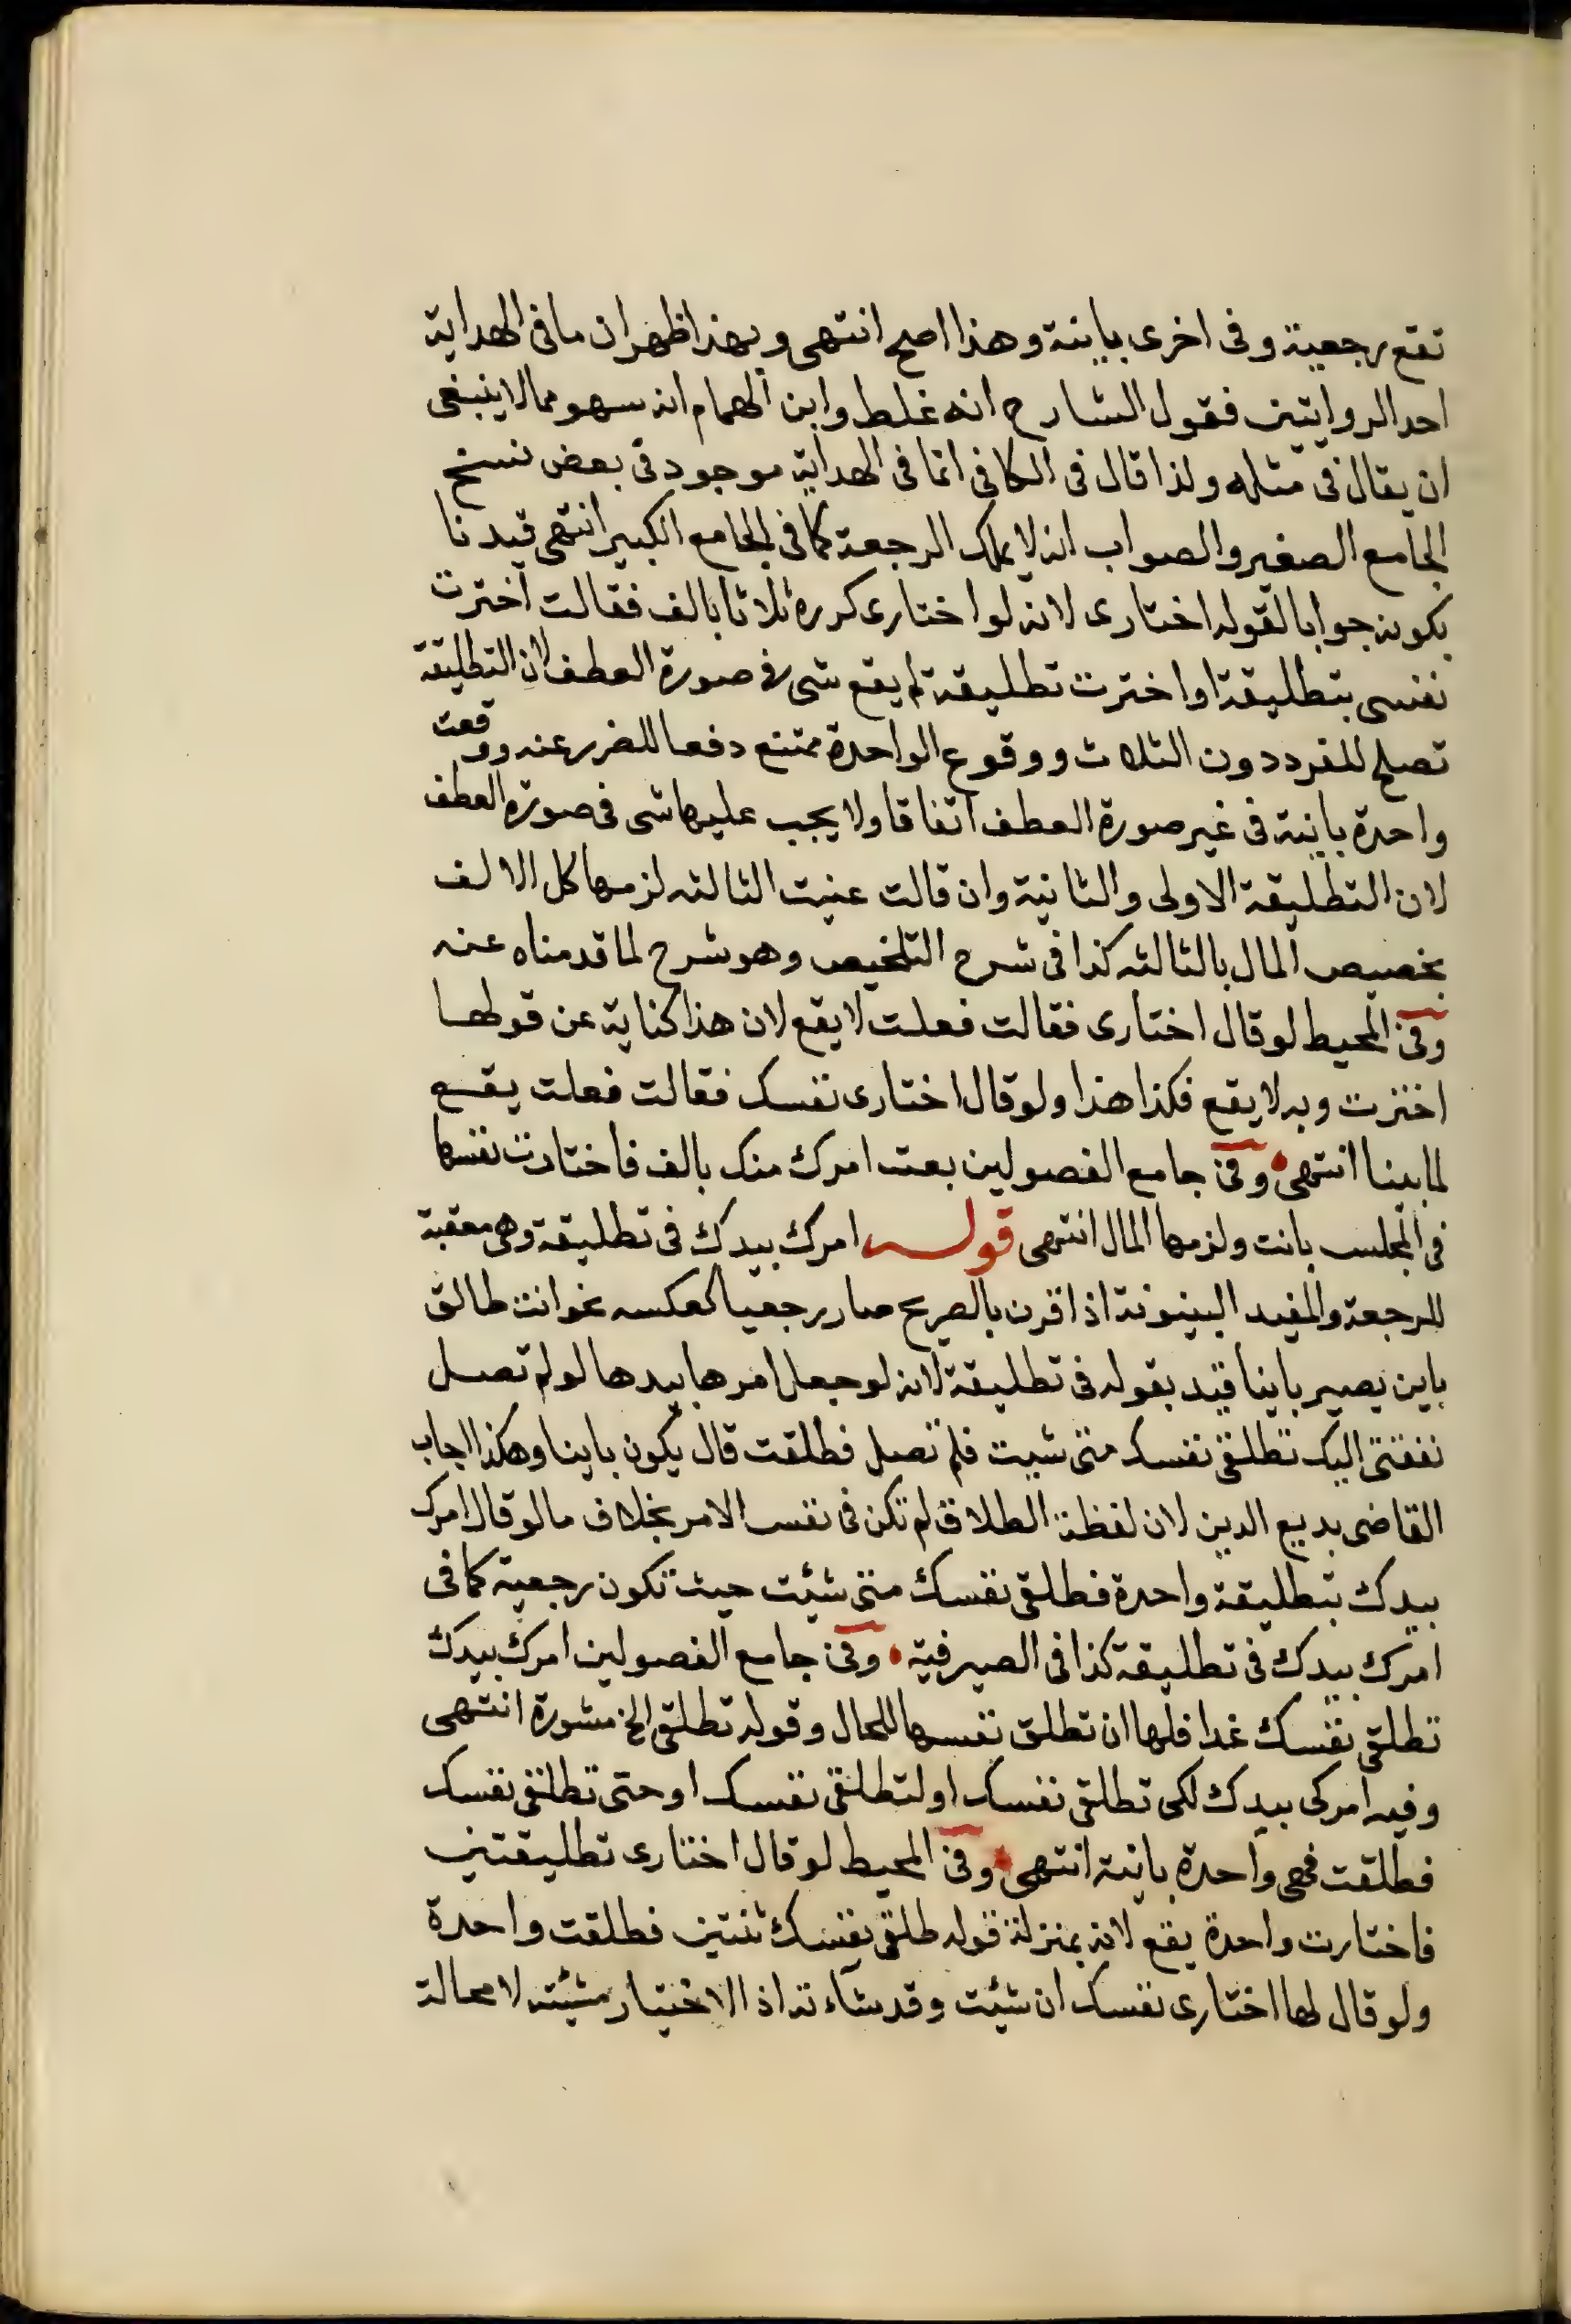 تقع رجعية وفى اخرى باينة وهذا اصح انتهى وبهذا ظهر ان ما فى الهداية
احد الروايتين فقول الشارح انه غلط وابن الهمام انه سهو مما لا ينبغى
ان يقال فى مثله ولذا قال فى الكافى انما فى الهداية موجود فى بعض نسخ
الجامع الصغير والصواب انه لا يملك الرجعة كما فى الجامع الكبير انتهى قيدنا
بكونه جوابا لقوله اختارى لانه لو اختارى كرره ثلاثا بالف فقالت اخترت
نفسى بتطليقة او اخترت تطليقة لم يقع شى فى صورة العطف لان التطليقة
تصلح للفرد دون الثلاث ووقوع الواحدة ممتنع دفعا للضرر عنه ووقعت
واحدة باينة فى غير صورة العطف اتفاقا ولا يجب عليها شى فى صورة العطف
لان التطليقة الاولى والثانية وان قالت عنيت الثالثه لزمها كل الالف
بخصيص المال بالثالثه كذا فى شرح التلخيص وهو شرح لما قدمناه عنه
وفى المحيط لو قال اختارى فقالت فعلت لا يقع لان هذا كناية عن قولها
اخترت وبه لا يقع فكذا هذا ولو قال اختارى نفسك فقالت فعلت يقع
لما بينا انتهى وفى جامع الفصولين بعت امرك منك بالف فاختارت نفسها
فى المجلس بانت ولزمها المال انتهى قوله امرك بيدك فى تطليقة وهى معقبة
للرجعة والمفيد البينونة اذا قرن بالصريح صار رجعيا كعكسه نحو انت طالق
باين يصير باينا قيد بقوله فى تطليقة لانه لو جعل امرها بيدها لو لم تصل
نفقتى اليك تطلقى نفسك متى شيت فلم تصل فطلقت قال يكون باينا وهكذا اجاب
القاضى بديع الدين لان لفظة الطلاق لم تكن فى نفس الامر بخلاف ما لو قال امرك
بيدك بتطليقة واحدة فطلقى نفسك متى شئت حيث تكون رجعية كما فى
امرك بيدك فى تطليقة كذا فى الصيرفية وفى جامع الفصولين امرك بيدك
تطلقى نفسك غدا فلها ان تطلق نفسها للحال وقوله تطلقى الخ مشورة انتهى
وفيه امركى بيدك لكى تطلقى نفسك او لتطلقى نفسك او حتى تطلقى نفسك
فطلقت فهى واحدة باينة انتهى وفى المحيط لو قال اختارى تطليقتين
فاختارت واحدة يقع لانه بمنزلة قوله طلقى نفسك ثنتين فطلقت واحدة
ولو قال لها اختارى نفسك ان شئت وقد شاءت اذ الاختيار مشيئته لا محالة